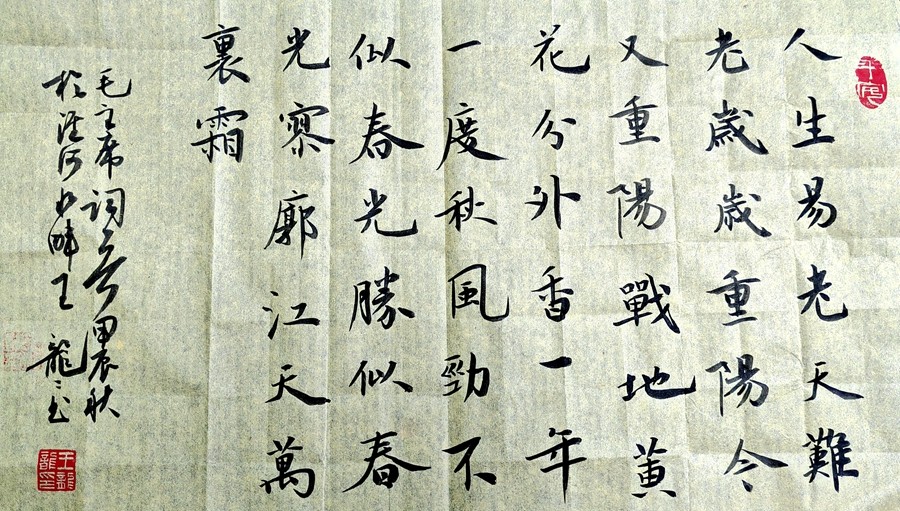 人生易老天難
老歲歲重陽今
又重陽戰地黄
花分外香一年
一度秋風勁不
似春光勝似春
光寥廓江天萬
裏霜
毛主席詞一首甲辰秋
於淮河水畔王龍〻書
王龍龍印